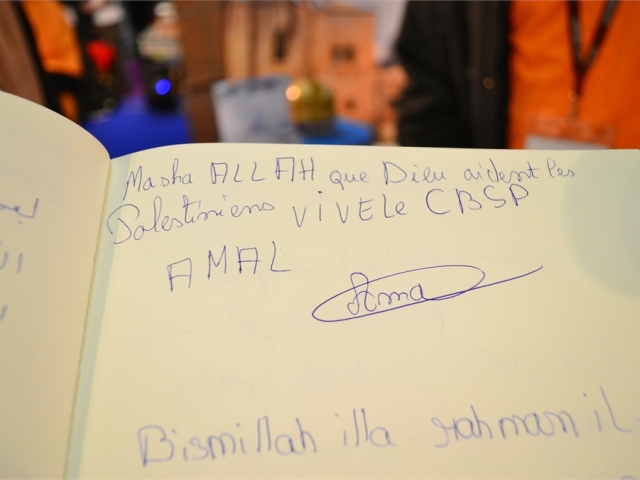 Masha ALLAH que Dieu aident les
Palestiniens VIVE Le CBSP
AMAL
Ama
Bismillah illa rahman il-